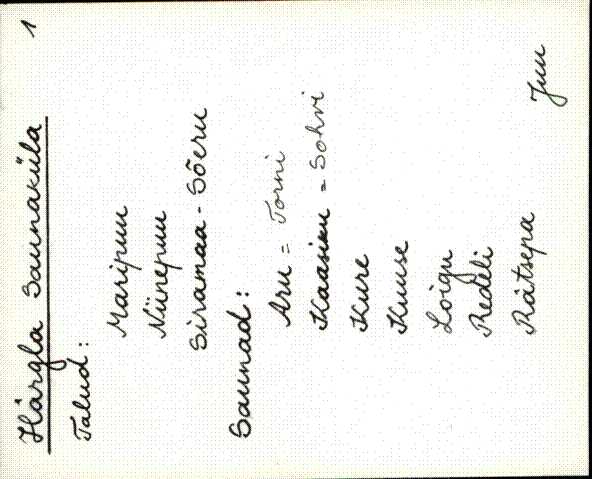 Hårgla Saunaküla 1
Talud:
Maripuu
Niinepuu
Siramaa - Sõeru
Saunad:
Aru = Torni
Kaasiku = Sohvi
Kure
Kuuse
Loigu
Redeli
Råtsepa
Juu